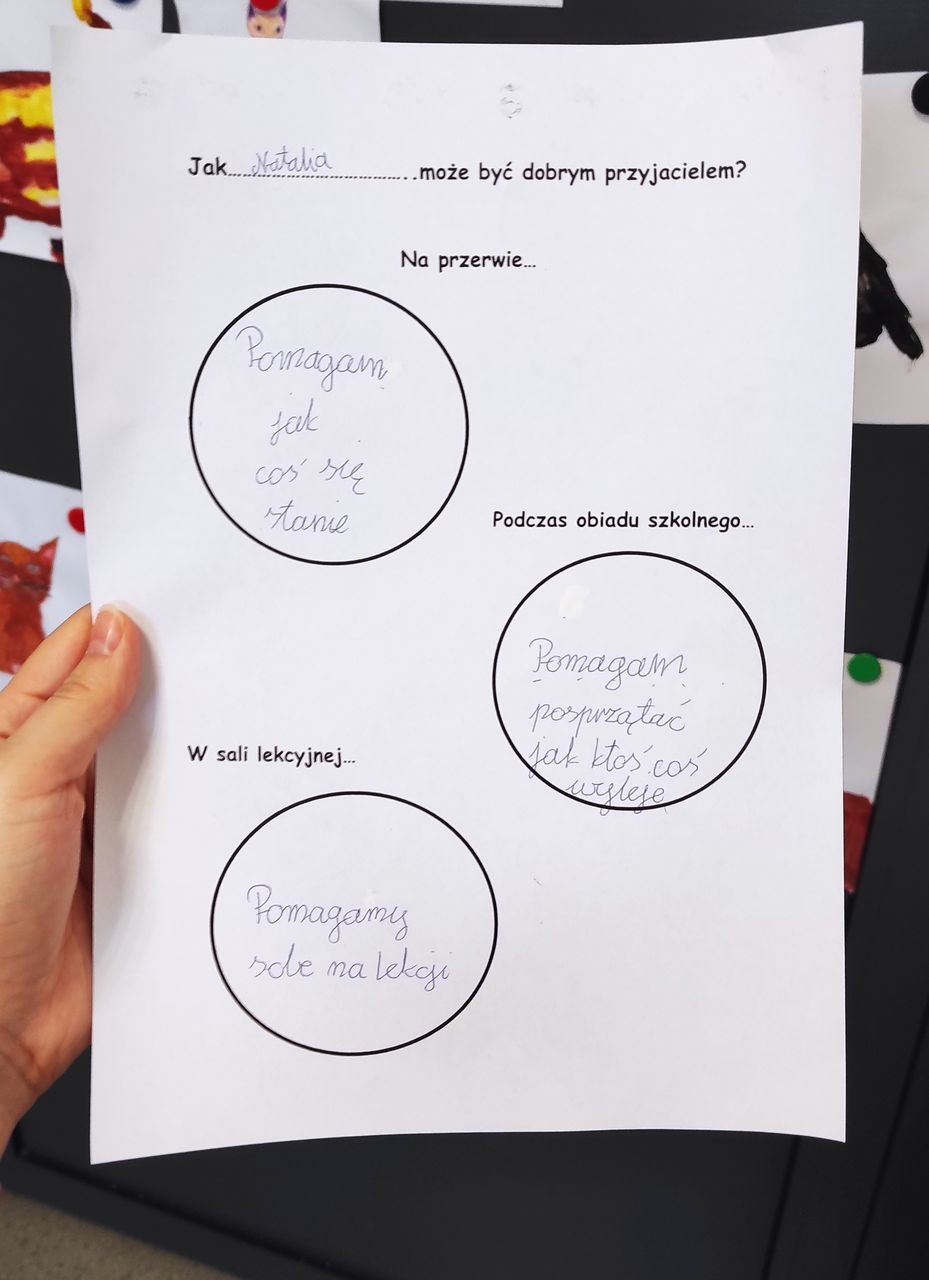 Jak.....Natalia.....może być dobrym przyjacielem?
Na przerwie...
Pomagam
jak
coś się
stanie
Podczas obiadu szkolnego...
Pomagam
posprzątać
jak ktoś coś
wyleje
W sali lekcyjnej...
Pomagamy
sobe na lekcji